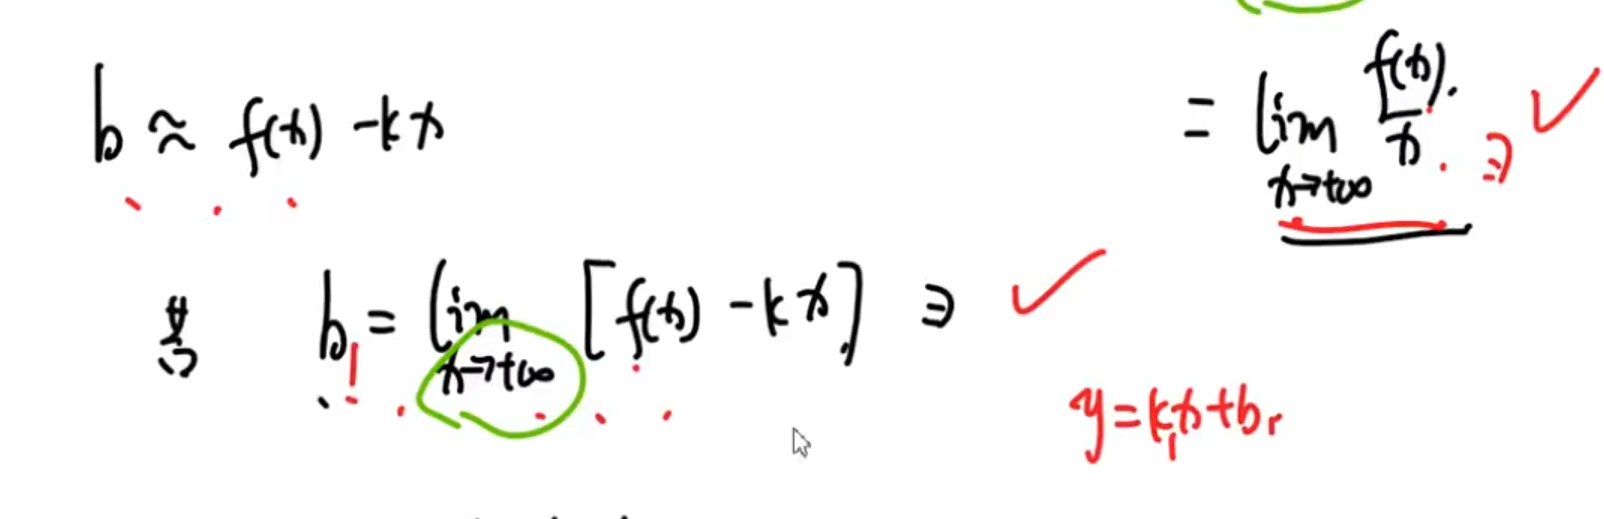 b ≈ f(x) - kx
= lim_{x→+∞} f(x)/x ∃
若 b = lim_{x→+∞} [f(x) - kx] ∃
y = kx + b,